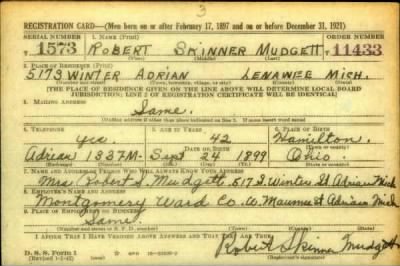 3
REGISTRATION CARD—(Men born on or after February 17, 1897 and on or before December 31, 1921)
SERIAL NUMBER 1. NAME (Print) ORDER NUMBER
T 1573 ROBERT SKINNER MUDGETT T 11433
(First) (Middle) (Last)
2. PLACE OF RESIDENCE (Print)
517 S WINTER ADRIAN LENAWEE MICH.
(Number and street) (Town, township, village, or city) (County) (State)
[THE PLACE OF RESIDENCE GIVEN ON THE LINE ABOVE WILL DETERMINE LOCAL BOARD
JURISDICTION; LINE 2 OF REGISTRATION CERTIFICATE WILL BE IDENTICAL]
3. MAILING ADDRESS
Same.
[Mailing address if other than place indicated on line 2. If same insert word same]
4. TELEPHONE 5. AGE IN YEARS 6. PLACE OF BIRTH
yes 42 Hamilton
DATE OF BIRTH
Adrian 1337M- Sept 24 1899 Ohio
7. NAME AND ADDRESS OF PERSON WHO WILL ALWAYS KNOW YOUR ADDRESS
Mrs Robert S. Mudgett 517 S. Winter St Adrian Mich
8. EMPLOYER'S NAME AND ADDRESS
Montgomery Ward Co. W. Maumee St Adrian Mich
9. PLACE OF EMPLOYMENT OR BUSINESS
Same
I AFFIRM THAT I HAVE VERIFIED ABOVE ANSWERS AND THAT THEY ARE TRUE.
D. S. S. Form 1
(Revised 1-1-42)
Robert Skinner Mudgett